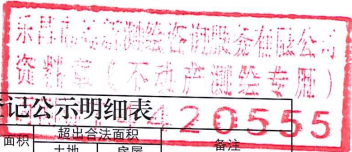 乐昌市志新测绘咨询服务有限公司
资料章（不动产测绘专用）
20555
记公示明细表
面积 超出合法面积 备注
土地 房屋